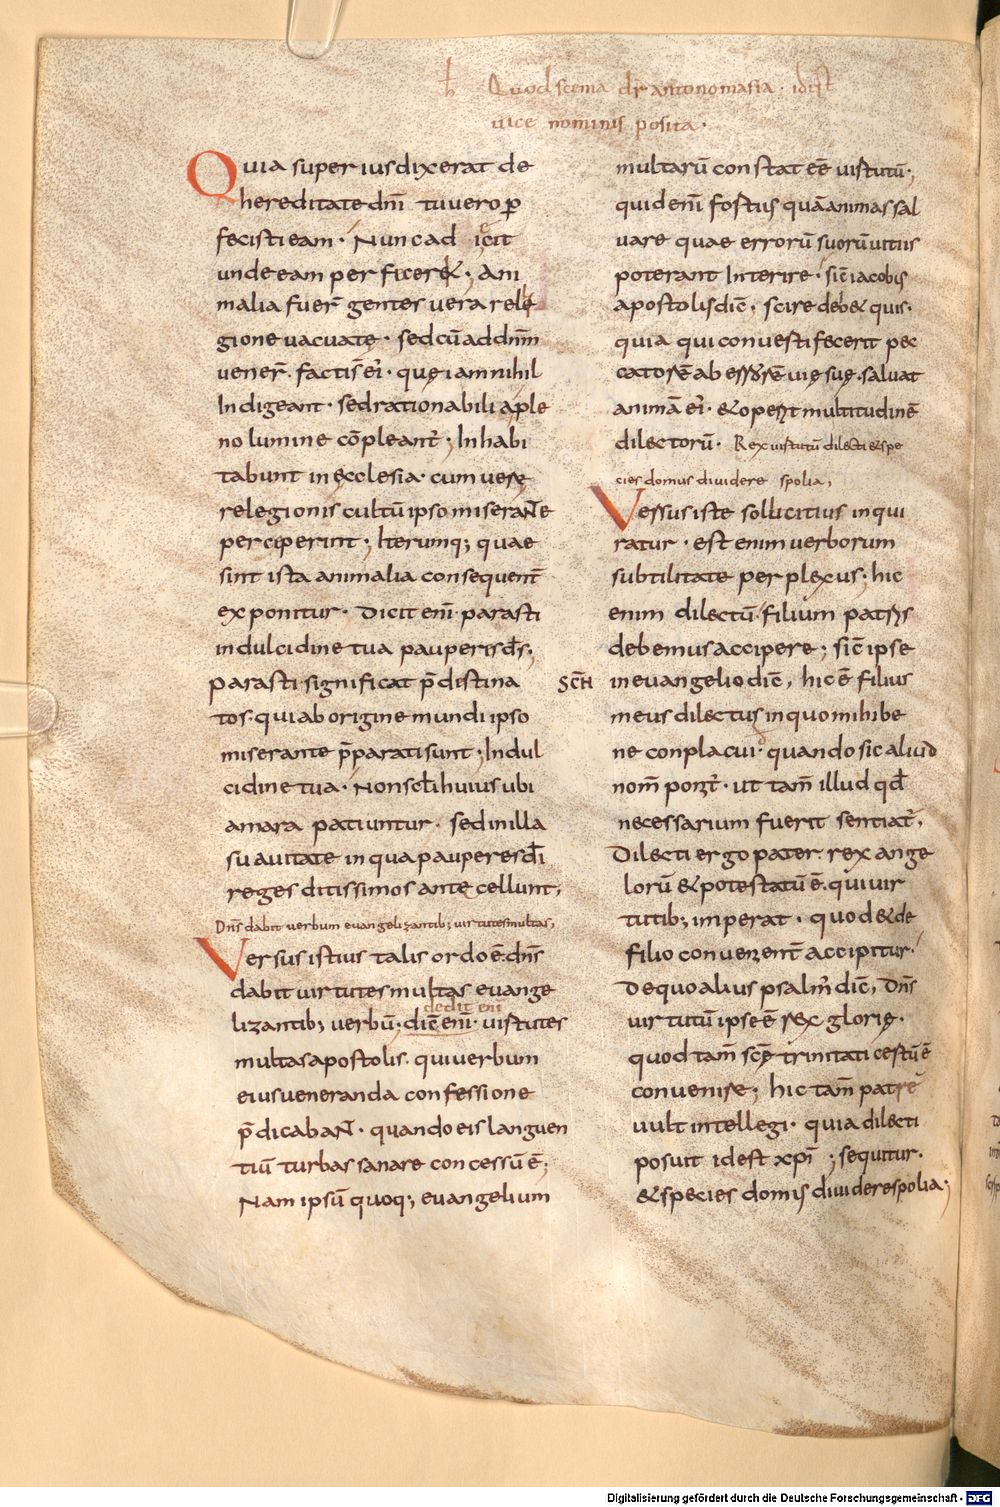 Quod scema dr antonomasia · idest
vice nominis posita ·
Quia superius dixerat de
hereditate dn̄i tu vero ꝑ
fecisti eam · Nunc ad icit
unde eam perficeret; Ani
malia fuer̄ gentes vera rele
gione vacuatę · sed cū ad dn̄m
vener̄ · factis ēi · quę iam nihil
Indigeant · sed rationabili aple
no lumine cōpleant̄; Inhabi
tabunt in ecclesia · cum verę
relegionis cultū ipso miserante
perciperint; Iterumq; quae
sint ista animalia consequent̄
exponitur · Dicit enī · parasti
in dulcidine tua pauperis d̄s;
parasti significat p̄distina
tos · qui ab origine mundi ipso
miserante p̄parati sunt; In dul
cidine tua · Non sc̄li huius ubi
amara patiuntur · sed in illa
suavitate in qua pauperes dī
reges ditissimos antecellunt,
Dn̄s dabit verbum evangelizantib; virtutes multas,
Versus istius talis ordo ē · dn̄s
dabit virtutes multas evange
dedit eni
lizantib; verbū; dic̄ enī · virtutes
multas apostolis · qui verbum
eius veneranda confessione
p̄dicabant · quando eis languen
tiū turbas sanare concessū ē;
Nam ipsū quoq; evangelium
multarū constat eē virtutū;
quid enī fortius quā animas sal
vare quae errorū suorū vitiis
poterant Interire · sic̄ iacobis
apostolis dic̄ · scire debet quis ·
quia qui converti fecerit pec
catorē ab errorē vię suę · salvat
animā ēi · & operit multitudinē
dilectorū · Rex virtutū dilecti & spe
cies domus dividere spolia,
Versus iste sollicitius inqui
ratur · est enim verborum
subtilitate perplexus; hic
enim dilectū · filium patris
debemus accipere; sic̄ ipse
SCH̄
in evangelio dic̄, hic ē filius
meus dilectus in quo mihi be
ne conplacui · quando sic aliud
nom̄ ponit̄ · ut tam̄ illud qd̄
necessarium fuerit sentiat̄,
Dilecti ergo pater · rex ange
lorū & potestatū ē · qui vir
tutib; imperat · quod & de
filio convenient̄ accipitur ·
De quo alius psalm̄ dic̄, Dn̄s
virtutū ipse ē rex glorię ·
quod tam̄ sc̄ę trinitati certū ē
convenire; hic tam̄ patrē
vult intellegi · quia dilecti
posuit idest xp̄i; sequitur ·
& species domis dividere spolia;
Digitalisierung gefördert durch die Deutsche Forschungsgemeinschaft - DFG